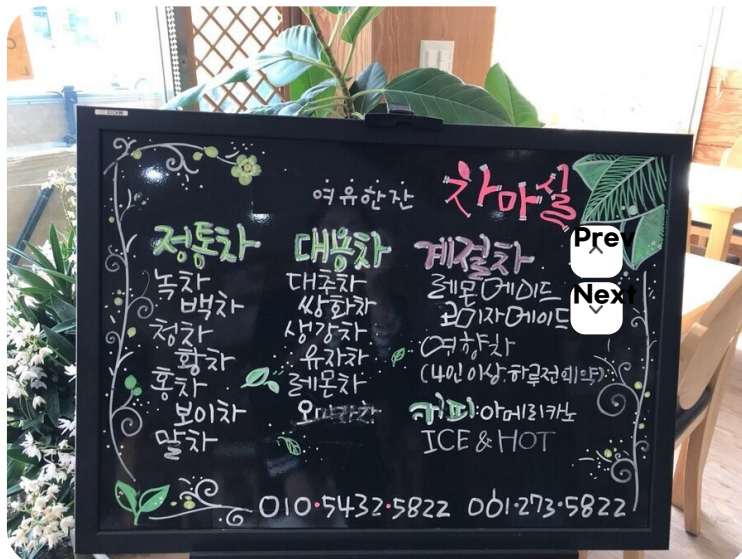 여유한잔 차마실
정통차
녹차
백차
청차
황차
홍차
보이차
말차
대용차
대추차
쌍화차
생강차
유자차
레몬차
계절차
레몬에이드
오미자에이드
연향차
(4인이상,하루전예약)
커피:아메리카노
ICE & HOT
010·5432·5822 061·273·5822
Prev
Next